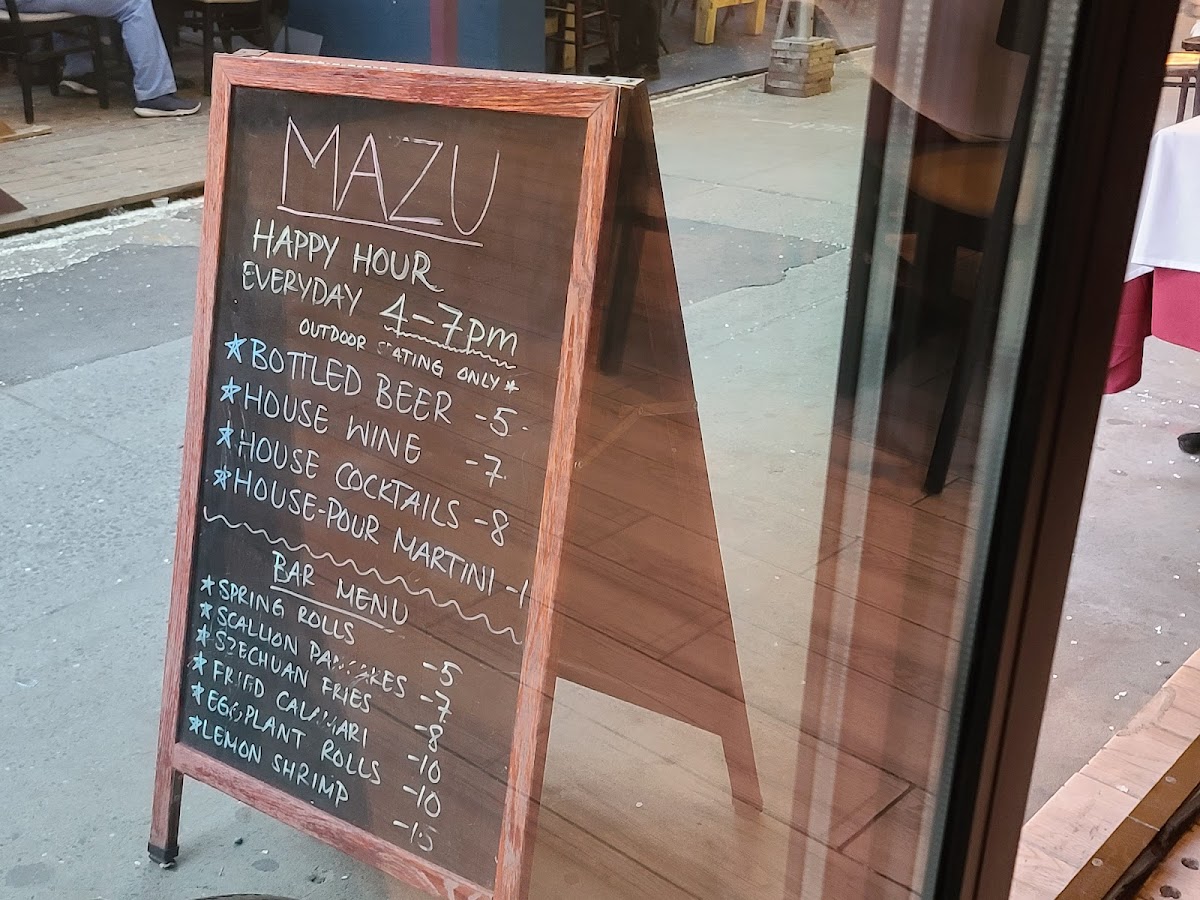 MAZU
HAPPY HOUR
EVERYDAY 4-7pm
OUTDOOR SEATING ONLY *
* BOTTLED BEER -5
* HOUSE WINE -7
* HOUSE COCKTAILS -8
* HOUSE-POUR MARTINI
BAR MENU
* SPRING ROLLS -5
* SCALLION PANCAKES -7
* SZECHUAN FRIES -8
* FRIED CALAMARI -10
* EGGPLANT ROLLS -10
* LEMON SHRIMP -15